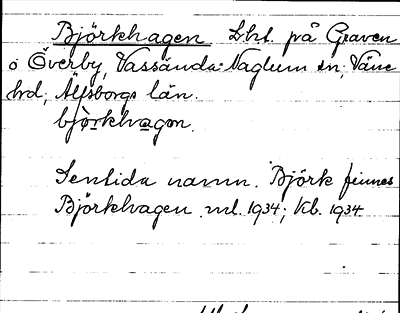 Björkhagen Lht. på Graven
o Överby, Vassända-Naglum sn, Väne
hrd, Älfsborgs län.
bjo̱rkhaga̱n.
Sentida namn. Björk finnes
Björkhagen ml. 1934; Kb. 1934